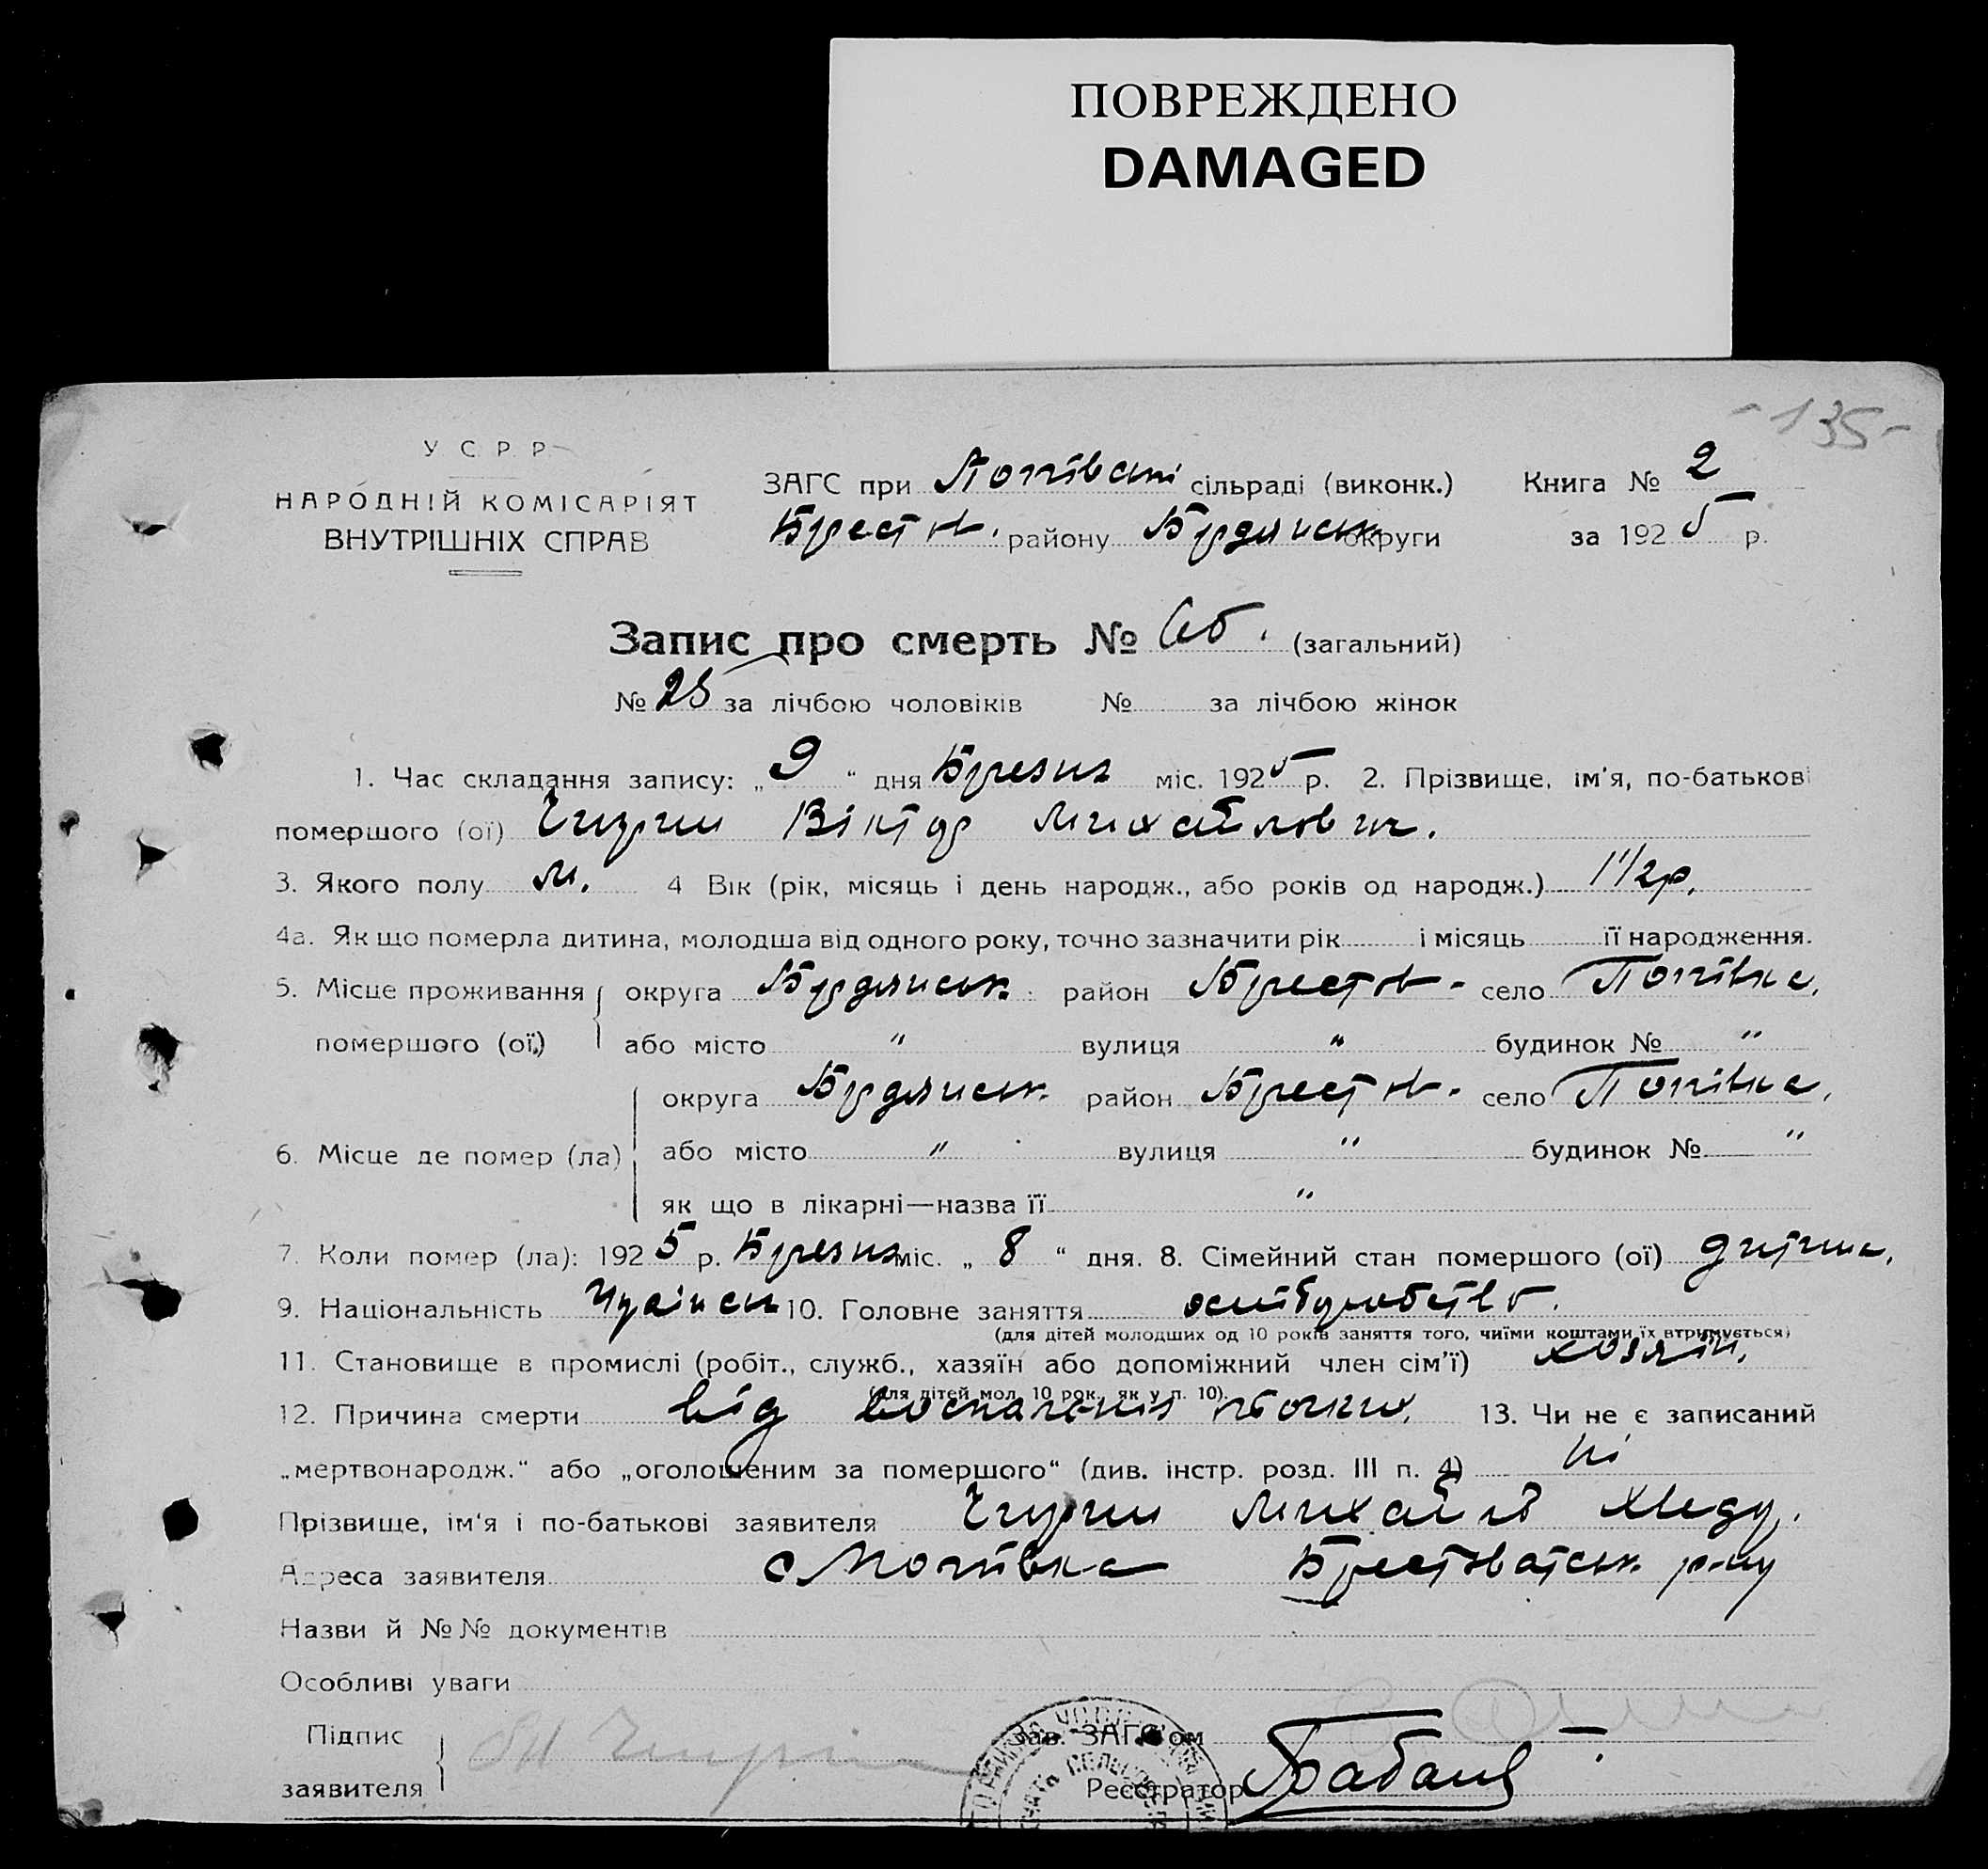 ПОВРЕЖДЕНО
DAMAGED
-135-
У С. Р. Р.
НАРОДНІЙ КОМІСАРІЯТ
ВНУТРІШНІХ СПРАВ
ЗАГС при Попівські сільраді (виконк.) Книга № 2
Брестов. району Бердянськ округи за 1925 р.
Запис про смерть № (загальний)
№ 25 за лічбою чоловіків № за лічбою жінок
1. Час складання запису: „9“ дня Березня міс. 1925 р. 2. Прізвище, ім'я, по-батькові
помершого (ої) Чигрин Віктор Михайлович.
3. Якого полу м. 4 Вік (рік, місяць і день народж., або років од народж.) 1 1/2 р.
4а. Як що померла дитина, молодша від одного року, точно зазначити рік і місяць її народження.
5. Місце проживання помершого (ої) округа Бердянськ. район Брестов- село Попівка,
або місто " вулиця " будинок № "
6. Місце де помер (ла) округа Бердянськ. район Брестов. село Попівка,
або місто " вулиця " будинок № "
як що в лікарні—назва її "
7. Коли помер (ла): 1925 р. Березня міс. „8“ дня. 8. Сімейний стан помершого (ої) дитина,
9. Національність Україн 10. Головне заняття
(для дітей молодших од 10 років заняття того, чиїми коштами їх втримується)
11. Становище в промислі (робіт., служб., хазяїн або допоміжний член сім'ї) хозяїн.
(для дітей мол. 10 рок., як у п. 10).
12. Причина смерти від 13. Чи не є записаний
„мертвонародж.“ або „оголошеним за помершого“ (див. інстр. розд. III п. 4) ні
Прізвище, ім'я і по-батькові заявителя Чигрин Михайло
Адреса заявителя с Попівка Брестоватськ р-ну
Назви й №№ документів
Особливі уваги
Підпис заявителя Чигрин
Зав. ЗАГС'ом
Реєстратор